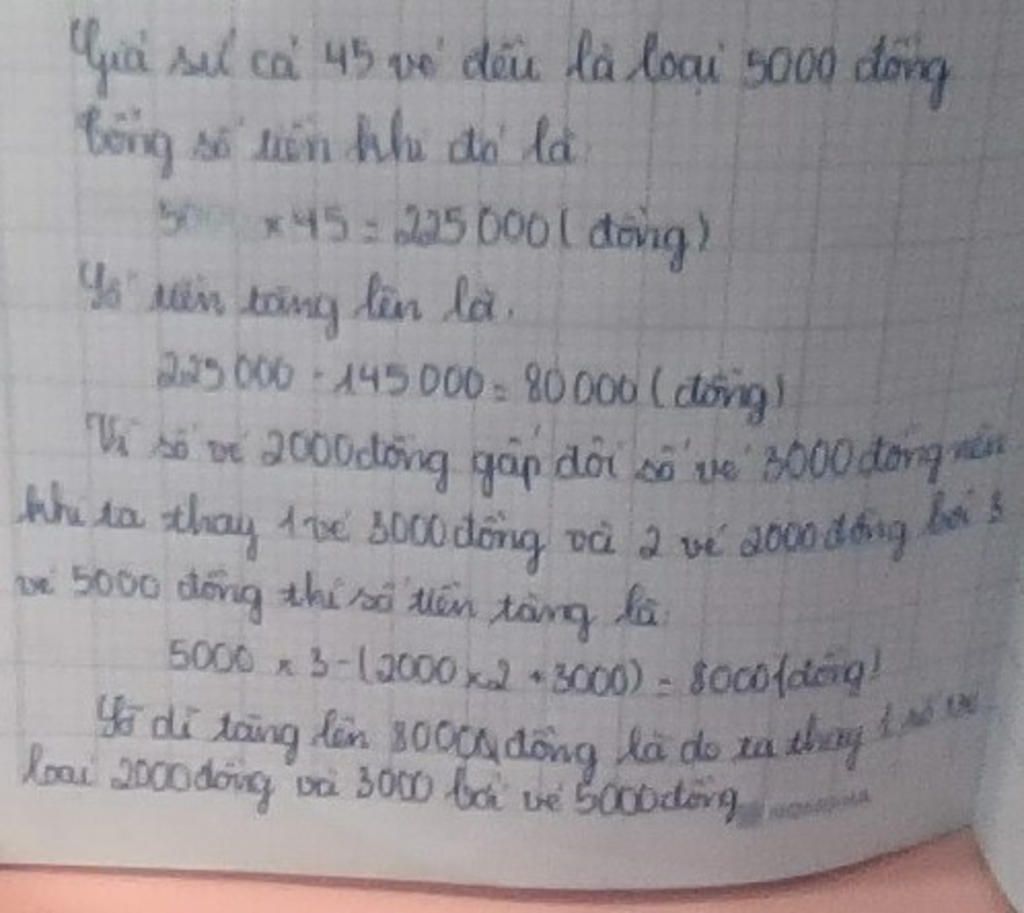 Giả sử cả 45 vé đều là loại 5000 đồng
tổng số tiền khi đó là:
5000 x 45 = 225000 (đồng)
Số tiền tăng lên là.
225000 - 145000 = 80000 (đồng)
Vì số vé 2000 đồng gấp đôi số vé 3000 đồng nên
khi ta thay 1 vé 3000 đồng và 2 vé 2000 đồng bởi 3
vé 5000 đồng thì số tiền tăng là:
5000 x 3 - (2000 x 2 + 3000) = 8000 (đồng)
Sở dĩ tăng lên 80000 đồng là do ta thay 1 số vé
loại 2000 đồng và 3000 bởi vé 5000 đồng